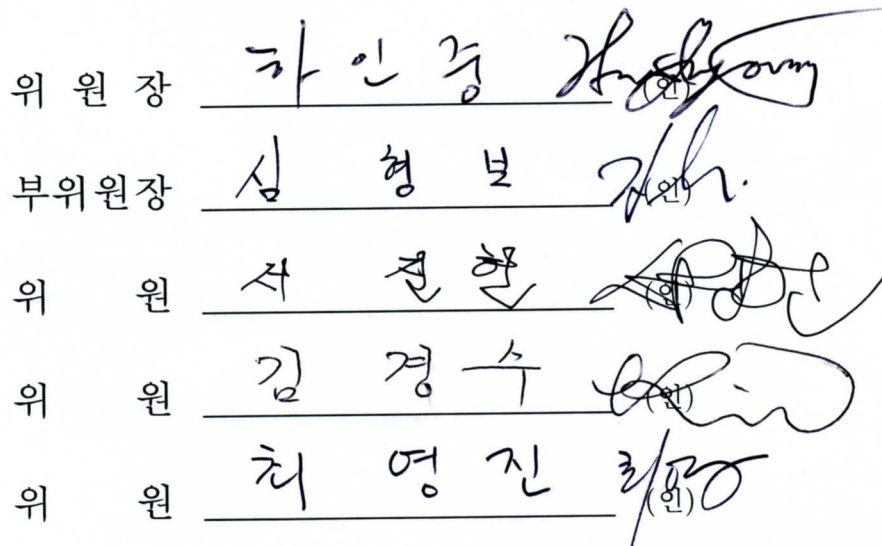 위 원 장 하 인 중 (인)
부위원장 심 형 보 (인)
위 원 서 진 환 (인)
위 원 김 경 수 (인)
위 원 최 영 진 (인)